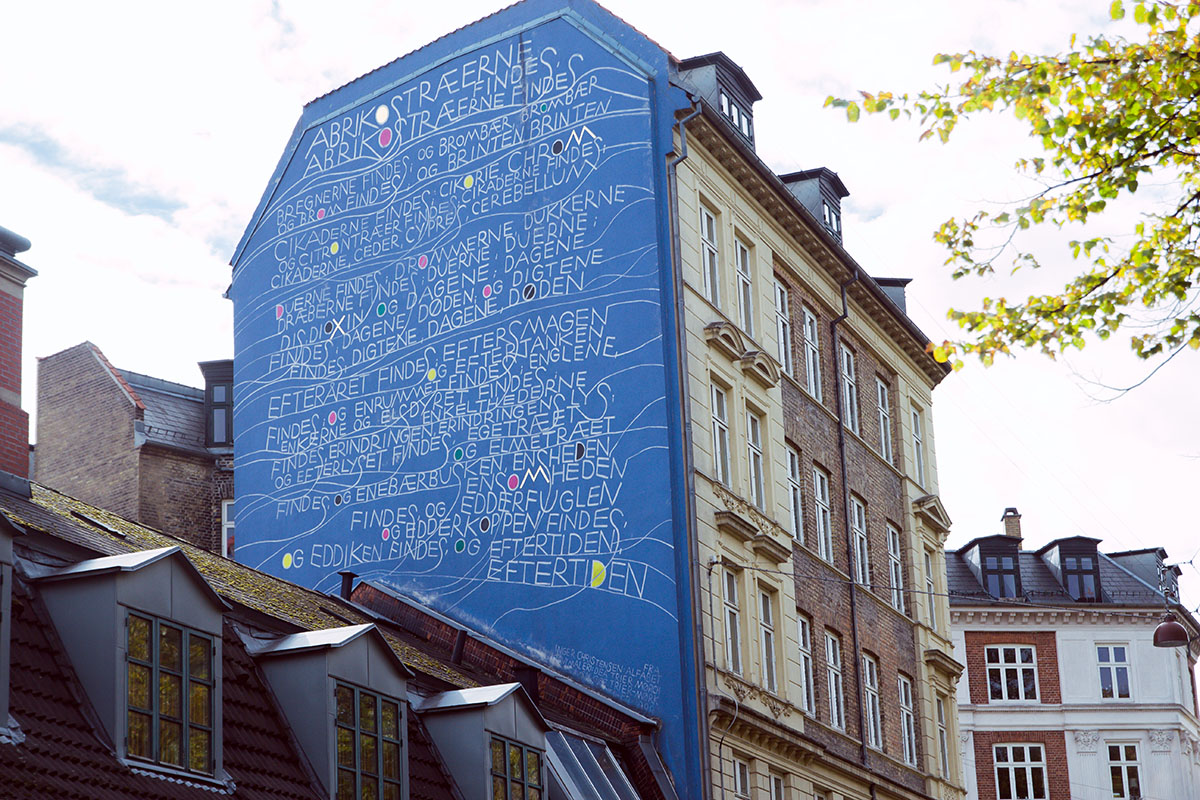 ABRIKOSTRÆERNE FINDES,
ABRIKOSTRÆERNE FINDES
BREGNERNE FINDES; OG BROMBÆR, BROMBÆR
OG BROM FINDES; OG BRINTEN, BRINTEN
CIKADERNE FINDES; CIKORIE, CHROM
OG CITRONTRÆER FINDES; CIKADERNE FINDES;
CIKADERNE, CEDER, CYPRES, CEREBELLUM
DUERNE FINDES; DRØMMERNE, DUKKERNE
DRÆBERNE FINDES; DUERNE, DUERNE;
DIS, DIOXIN OG DAGENE; DAGENE
FINDES; DAGENE, DØDEN; OG DIGTENE
FINDES; DIGTENE, DAGENE, DØDEN
EFTERÅRET FINDES; EFTERSMAGEN
OG EFTERTANKEN
FINDES; OG ENRUMMET FINDES; ENGLENE,
ENKERNE OG ELSDYRET FINDES;
FINDES, ERINDRINGEN, ERINDRINGENS LYS;
OG EFTERLYSET FINDES, EGETRÆET
OG ELMETRÆET
FINDES, OG ENEBÆRBUSKEN, ENSHEDEN,
ENSOMHEDEN
FINDES, OG EDDERFUGLEN
OG EDDERKOPPEN FINDES,
OG EDDIKEN FINDES, OG EFTERTIDEN,
EFTERTIDEN
INGER CHRISTENSEN ALFABET FRA